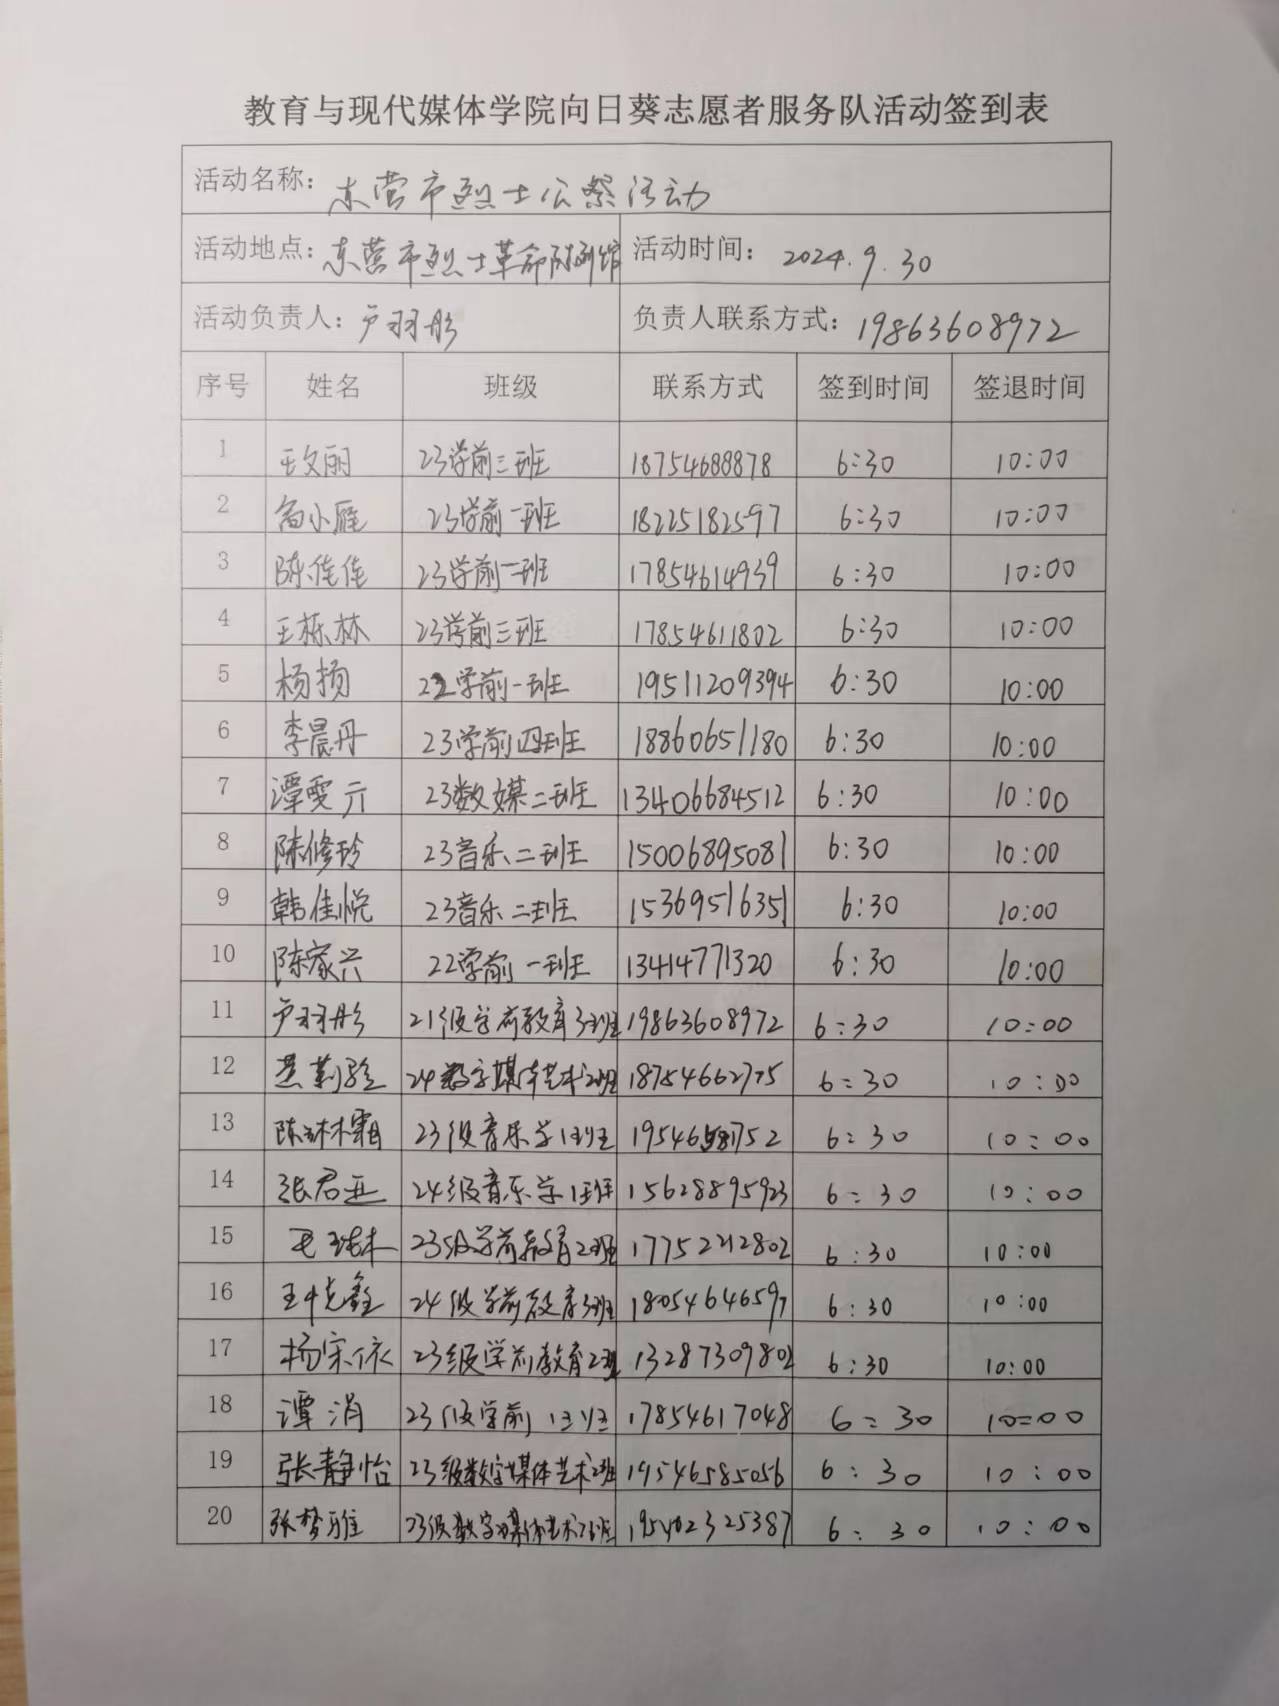 教育与现代媒体学院向日葵志愿者服务队活动签到表
活动名称: 东营市烈士公祭活动
活动地点: 东营市烈士革命陈列馆 活动时间: 2024.9.30
活动负责人: 卢羽彤 负责人联系方式: 19863608972
序号 姓名 班级 联系方式 签到时间 签退时间
1 王文丽 23学前三班 18754688878 6:30 10:00
2 小雁 23学前一班 18225182597 6:30 10:00
3 陈佳佳 23学前二班 17854614939 6:30 10:00
4 王栎林 23学前三班 17854611802 6:30 10:00
5 杨扬 22学前一班 19511209394 6:30 10:00
6 李晨丹 23学前四班 18860651180 6:30 10:00
7 谭雯亓 23数媒二班 13406684512 6:30 10:00
8 陈修玲 23音乐二班 15006895081 6:30 10:00
9 韩佳悦 23音乐二班 15369516351 6:30 10:00
10 陈家兴 22学前一班 13414771320 6:30 10:00
11 卢羽彤 21级学前教育3班 19863608972 6:30 10:00
12 24数字媒体艺术2班 18754662775 6:30 10:00
13 陈琳霜 23级音乐学1班 19546581752 6:30 10:00
14 张君亚 24级音乐学1班 15628895923 6:30 10:00
15 23级学前教育2班 17752212802 6:30 10:00
16 王悦鑫 24级学前教育3班 18054646597 6:30 10:00
17 杨宗依 23级学前教育2班 13287309802 6:30 10:00
18 谭涓 23级学前1班 17854617048 6:30 10:00
19 张静怡 23级数字媒体艺术2班 19546585056 6:30 10:00
20 张梦雅 23级数字媒体艺术2班 6:30 10:00